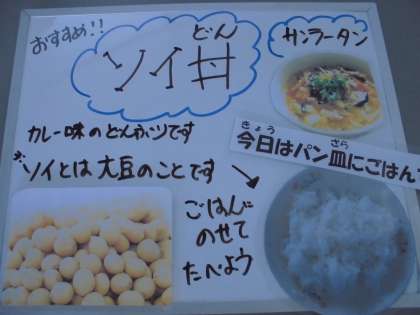 おすすめ!!
どん
ソイ丼
サンラータン
カレー味のどんぶつです
※ソイとは大豆のことです
きょう さら
今日はパン皿にごはん
ごはんに
のせて
たべよう